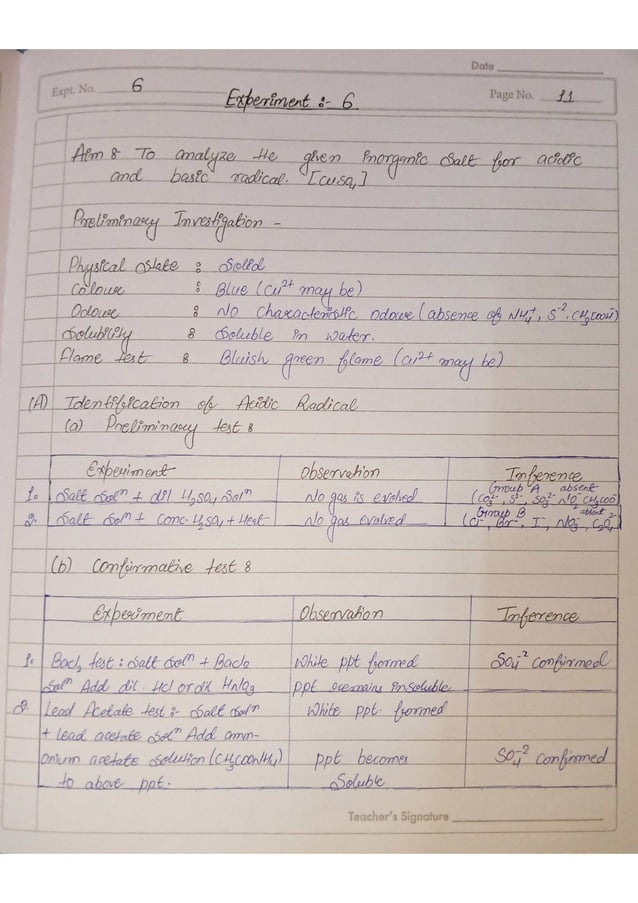 Date
Expt. No. 6
Page No. 11
Experiment :- 6
Aim : To analyze the given inorganic salt for acidic
and basic radical. [CuSO4]
Preliminary Investigation -
Physical State : Solid
Colour : Blue (Cu2+ may be)
Odour : No characteristic odour (absence of NH4+, S-2, CH3COO-)
Solubility : Soluble in water.
Flame test : Bluish green flame (Cu2+ may be)
(A) Identification of Acidic Radical
(a) Preliminary test :
Experiment Observation Inference
1. Salt Soln + dil H2SO4 Soln No gas is evolved Group A absent (CO3 2-, S2-, SO3 2-, NO2-, CH3COO-)
2. Salt Soln + Conc. H2SO4 + Heat No gas evolved Group B absent (Cl-, Br-, I-, NO3-, C2O4 2-
(b) Confirmative test :
Experiment Observation Inference
1. BaCl2 test : Salt Soln + BaCl2 White ppt formed SO4-2 confirmed
Soln Add dil. HCl or dil HNO3 ppt remains insoluble
2. Lead Acetate test :- Salt Soln White ppt. formed
+ lead acetate Soln Add amm-
onium acetate solution (CH3COONH4) ppt becomes SO4-2 confirmed
to above ppt. Soluble
Teacher's Signature